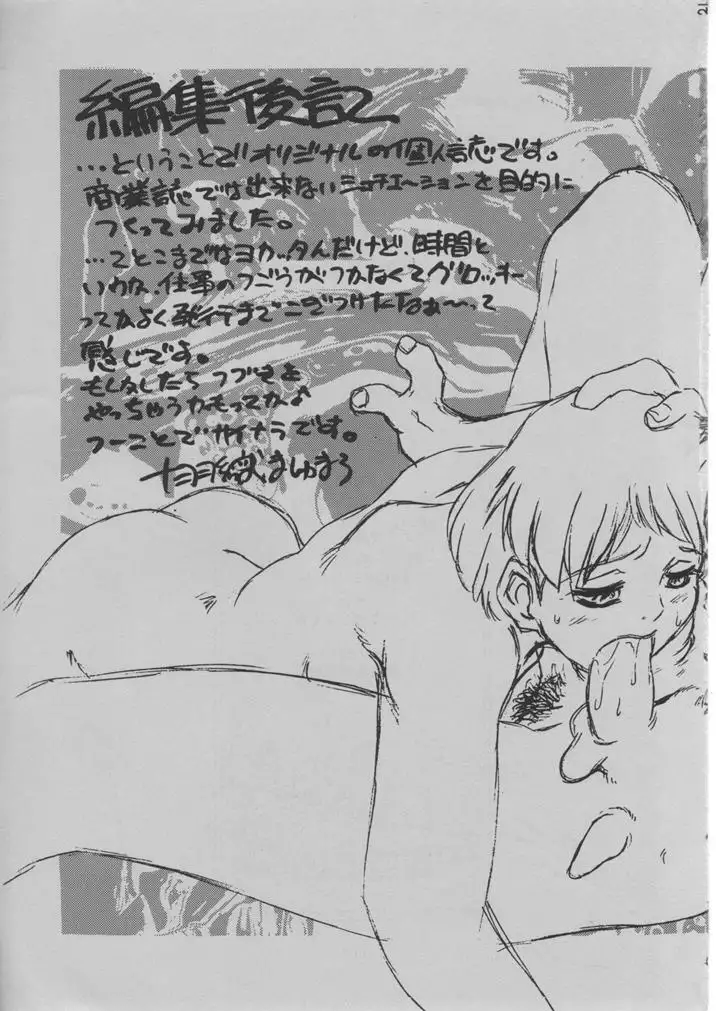 21
編集後記
…ということでオリジナルの個人誌です。
商業誌では出来ないシュチエーションを目的に
つくってみました。
…てとこまではヨカッタんだけど、時間と
いわん、仕事のつごうがつかなくてグロッキー
ってかよく発行までこぎつけたなぁ〜って
感じです。
もしかしたらつづきを
やっちゃうかもってか♪
つーことでサイナラです。
まゆまろ